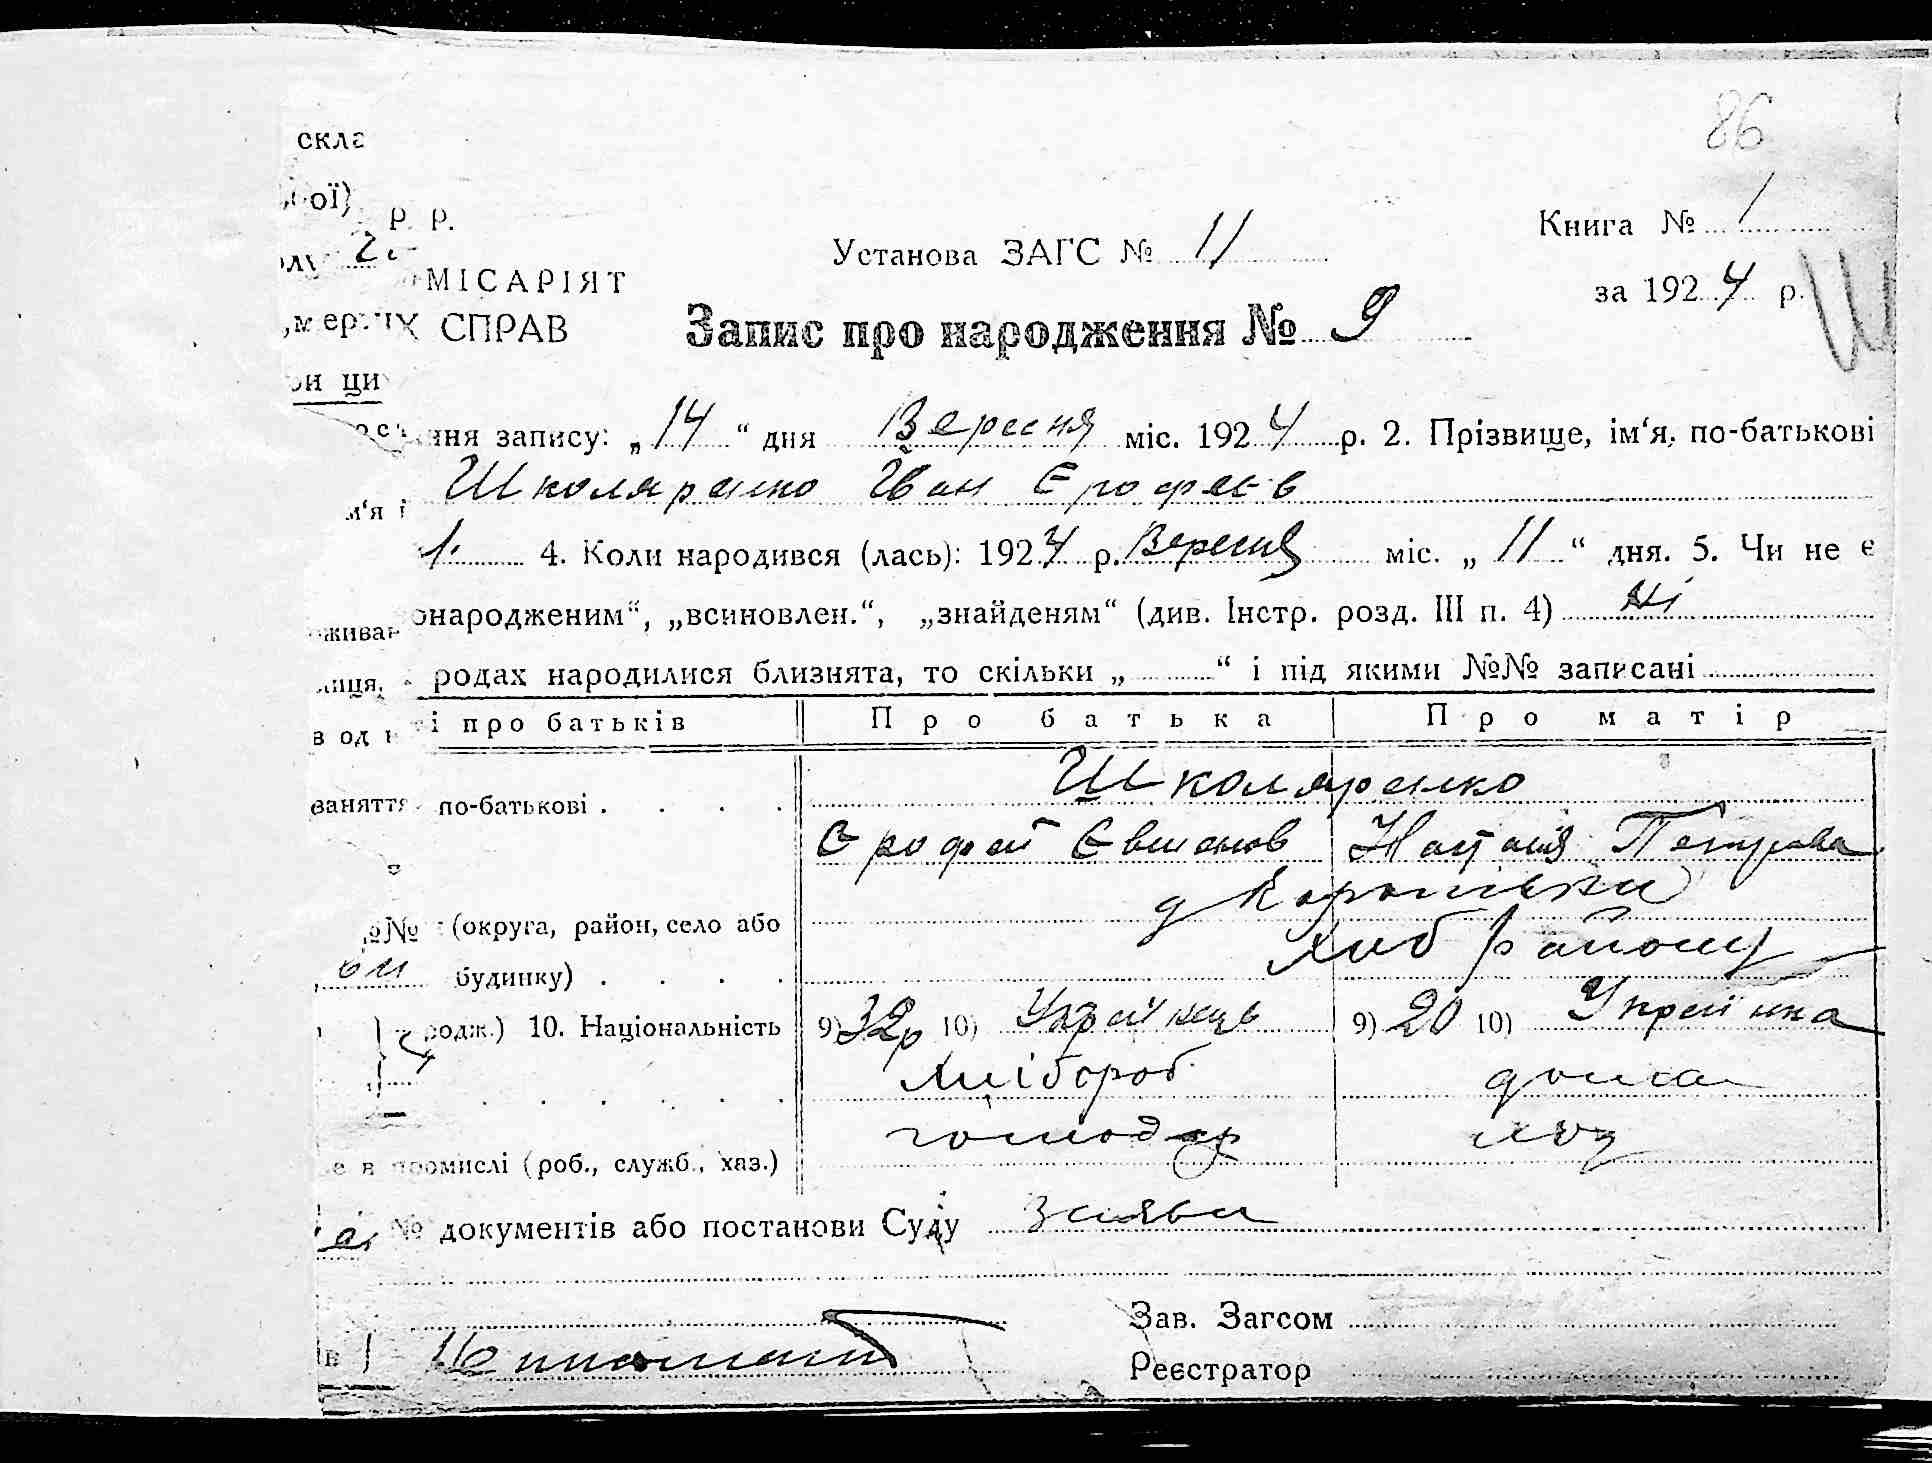 86
скла
ої)
р. р.
Установа ЗАГС № 11
Книга № 1
МІСАРІЯТ
за 1924 р.
СПРАВ
Запис про народження № 9
ри ци
ння запису: „14“ дня Вересня міс. 1924 р. 2. Прізвище, ім‘я, по-батькові
м‘я і Школяренко Іван Єрофеєв
1. 4. Коли народився (лась): 1924 р. Вересня міс. „11“ дня. 5. Чи не є
онародженим“, „всиновлен.“, „знайденям“ (див. Інстр. розд. III п. 4) ні
родах народилися близнята, то скільки „ “ і під якими №№ записані
і про батьків Про батька Про матір
Школяренко
заняття по-батькові
Єрофей Наталія Петрова
№ (округа, район, село або
району
будинку)
родж.) 10. Національність 9) 32р 10) Українець 9) 20 10) Українка
Хлібороб дома
господар хоз
в промислі (роб., служб., хаз.)
№ документів або постанови Суду Заява
Зав. Загсом
Реєстратор